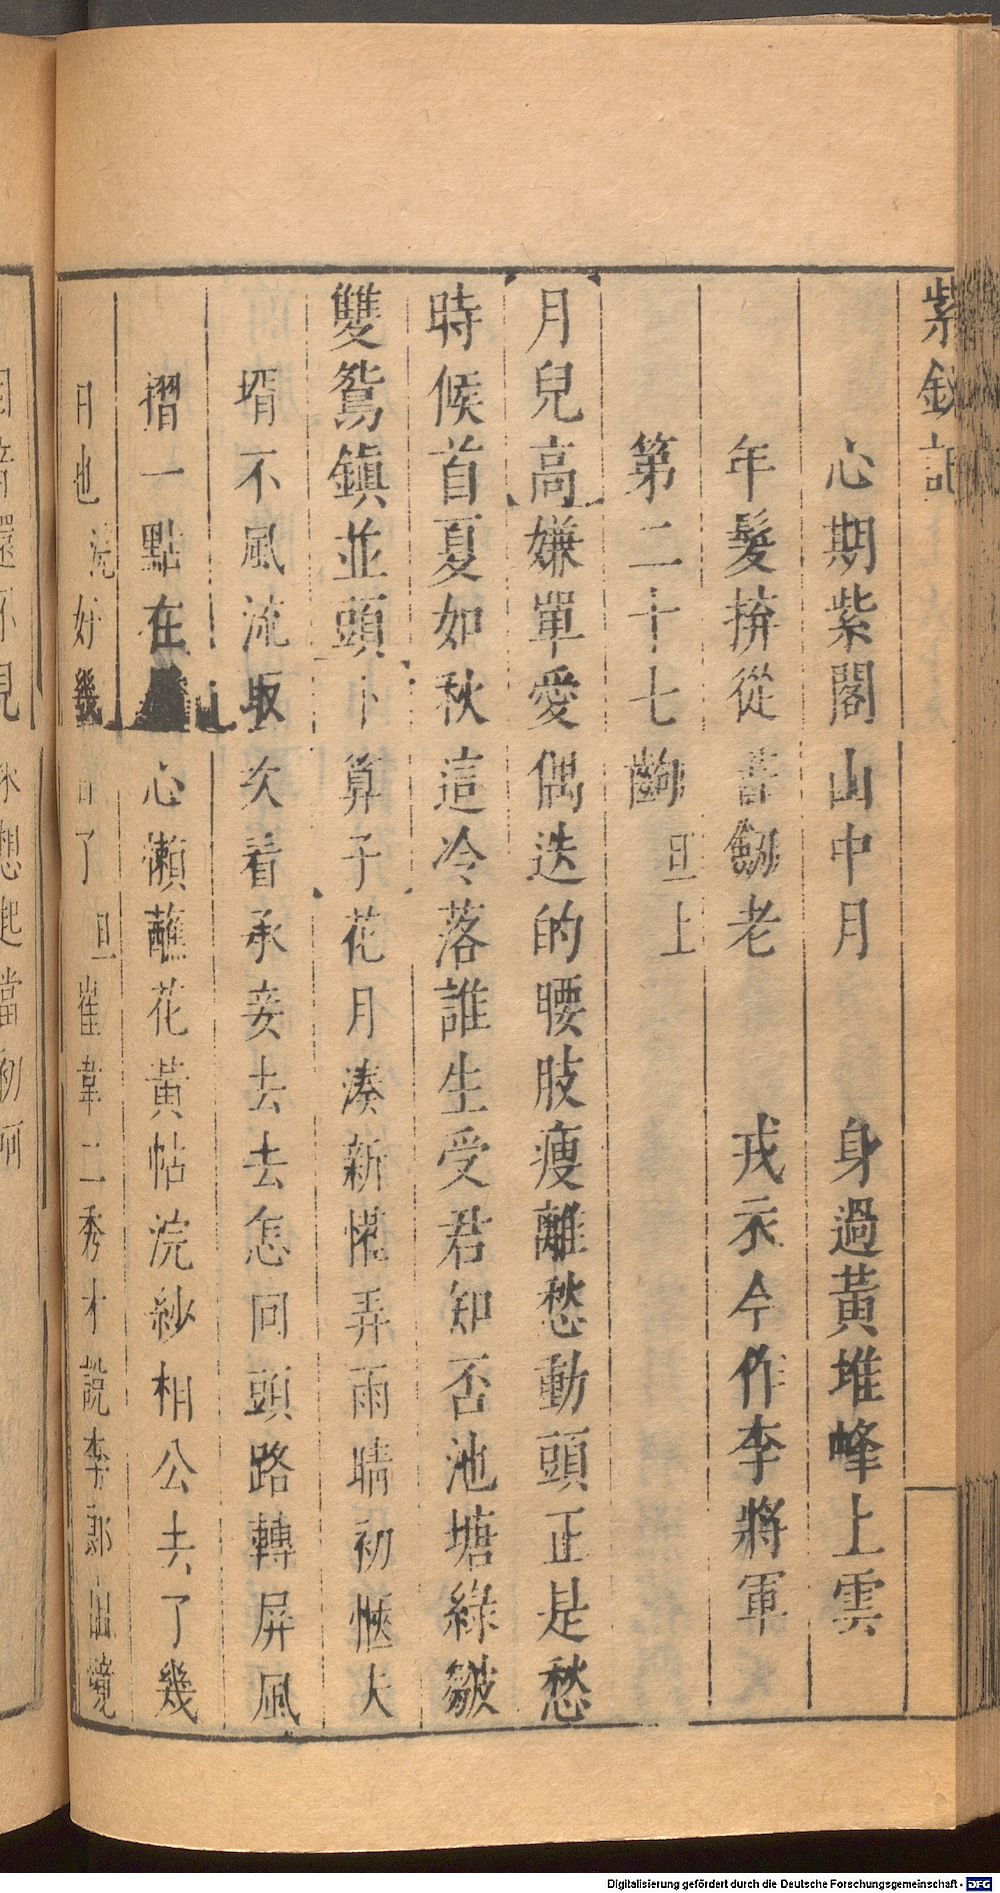 紫釵記
心期紫閣山中月　身過黃堆峰上雲
年髮拚從書劒老　戎衣今作李將軍
第二十七齣 旦上
月兒高嫌單愛偶迭的腰肢瘦離愁動頭正是愁
時候首夏如秋這冷落誰生受君知否池塘綠皺
雙鴛鎮並頭卜算子花月湊新懽弄雨晴初愜夫
壻不風流取次看承妾去去怎回頭路轉屏風
摺一點在心懶蘸花黃帖浣紗相公去了幾
日也浣好幾了旦崔韋二秀才說李郎出境
Digitalisierung gefördert durch die Deutsche Forschungsgemeinschaft - DFG